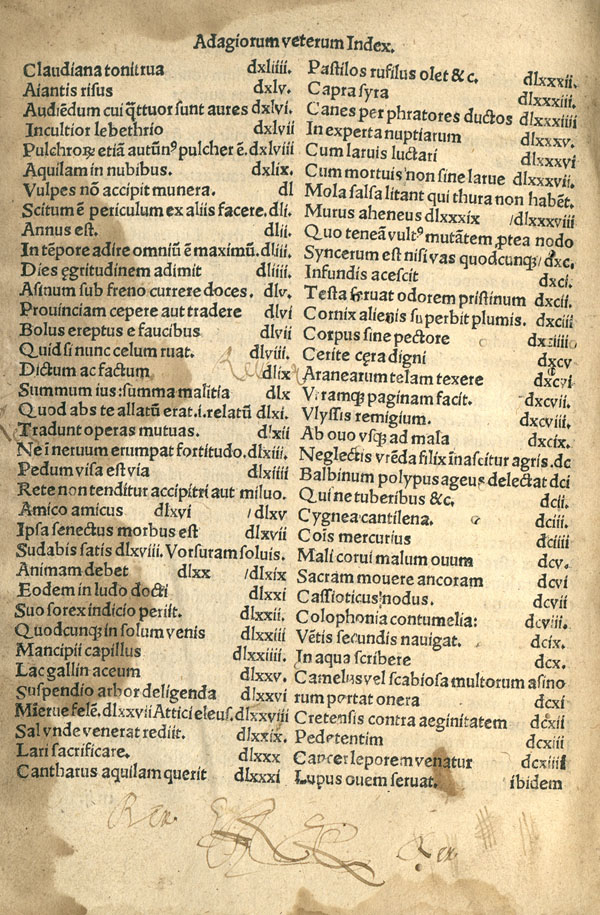 Adagiorum veterum Index.
Claudiana tonitrua dxliiii.
Aiantis risus dxlv.
Audiēdum cui q̄ttuor sunt aures dxlvi.
Incultior lebethrio dxlvii
Pulchroꝝ etiā autūnꝰ pulcher ē. dxlviii
Aquilam in nubibus. dxlix.
Vulpes nō accipit munera. dl
Scitum ē periculum ex aliis facere. dli.
Annus est. dlii.
In tēpore adire omniū ē maximū. dliii.
Dies ęgritudinem adimit dliiii.
Asinum sub freno currere doces. dlv.
Prouinciam cepere aut tradere dlvi
Bolus ereptus e faucibus dlvii
Quid si nunc celum ruat. dlviii.
Dictum ac factum dlix
Summum ius: summa malitia dlx
Quod abs te allatū erat .i. relatū dlxi.
Tradunt operas mutuas. dlxii
Ne ī neruum erumpat fortitudo. dlxiii.
Pedum visa est via dlxiiii
Rete non tenditur accipitri aut miluo.
Amico amicus dlxvi /dlxv
Ipsa senectus morbus est dlxvii
Sudabis satis dlxviii. Vorsuram soluis.
Animam debet dlxx /dlxix
Eodem in ludo docti dlxxi
Suo sorex indicio periit. dlxxii.
Quodcunqꝫ in solum venis dlxxiii
Mancipii capillus dlxxiiii.
Lac gallin aceum dlxxv.
Suspendio arbor deligenda dlxxvi
Mierue felē. dlxxvii Attici eleus. dlxxviii
Sal vnde venerat rediit. dlxxix.
Lari sacrificare. dlxxx
Cantharus aquilam querit dlxxxi
Pastilos rufilus olet & c. dlxxxii.
Capra syra dlxxxiii.
Canes per phratores ductos dlxxxiiii
In experta nuptiarum dlxxxv.
Cum laruis luctari dlxxxvi
Cum mortuis non sine larue dlxxxvii.
Mola salsa litant qui thura non habēt.
Murus aheneus dlxxxix /dlxxxviii
Quo teneā vultꝰ mutātem ꝓtea nodo
Syncerum est nisi vas quodcunqꝫ /dxc.
Infundis acescit dxci.
Testa seruat odorem pristinum dxcii.
Cornix alienis superbit plumis. dxciii
Corpus sine pectore dxciiii
Cerite cęra digni dxcv
Aranearum telam texere dxcvi
Vtramqꝫ paginam facit. dxcvii.
Vlyssis remigium. dxcviii.
Ab ouo vsqꝫ ad mala dxcix.
Neglectis vrēda filix īnascitur agris. dc
Balbinum polypus ageus delectat dci
Qui ne tuberibus &c. dcii.
Cygnea cantilena. dciii.
Cois mercurius dciiii
Mali corui malum ouum dcv.
Sacram mouere ancoram dcvi
Cassioticus nodus. dcvii
Colophonia contumelia: dcviii.
Vētis secundis nauigat. dcix.
In aqua scribere dcx.
Camelus vel scabiosa multorum asino
rum portat onera dcxi
Cretensis contra aeginitatem dcxii
Pedetentim dcxiii
Cancer leporem venatur dcxiiii
Lupus ouem seruat. ibidem
Rex Rex